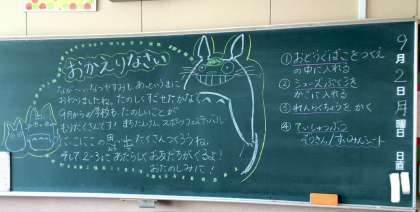 おかえりなさい
なが〜いなつやすみも、あっというまに
おわりましたね。たのしくすごせたかな?
9月から学校も たのしいことが
もりだくさんです! まちたんけん、スポーツフェスティバル
にこにこの日 たくさんつくろうね。
そして2-3に あたらしく お友だちがくるよ!
おたのしみに!
① おどうぐばこをつくえ
の中に入れる
② シューズぶくろを
かごに入れる
③ れんらくちょうを かく
④ ていしゅつぶつ
9月2日月曜日
日直